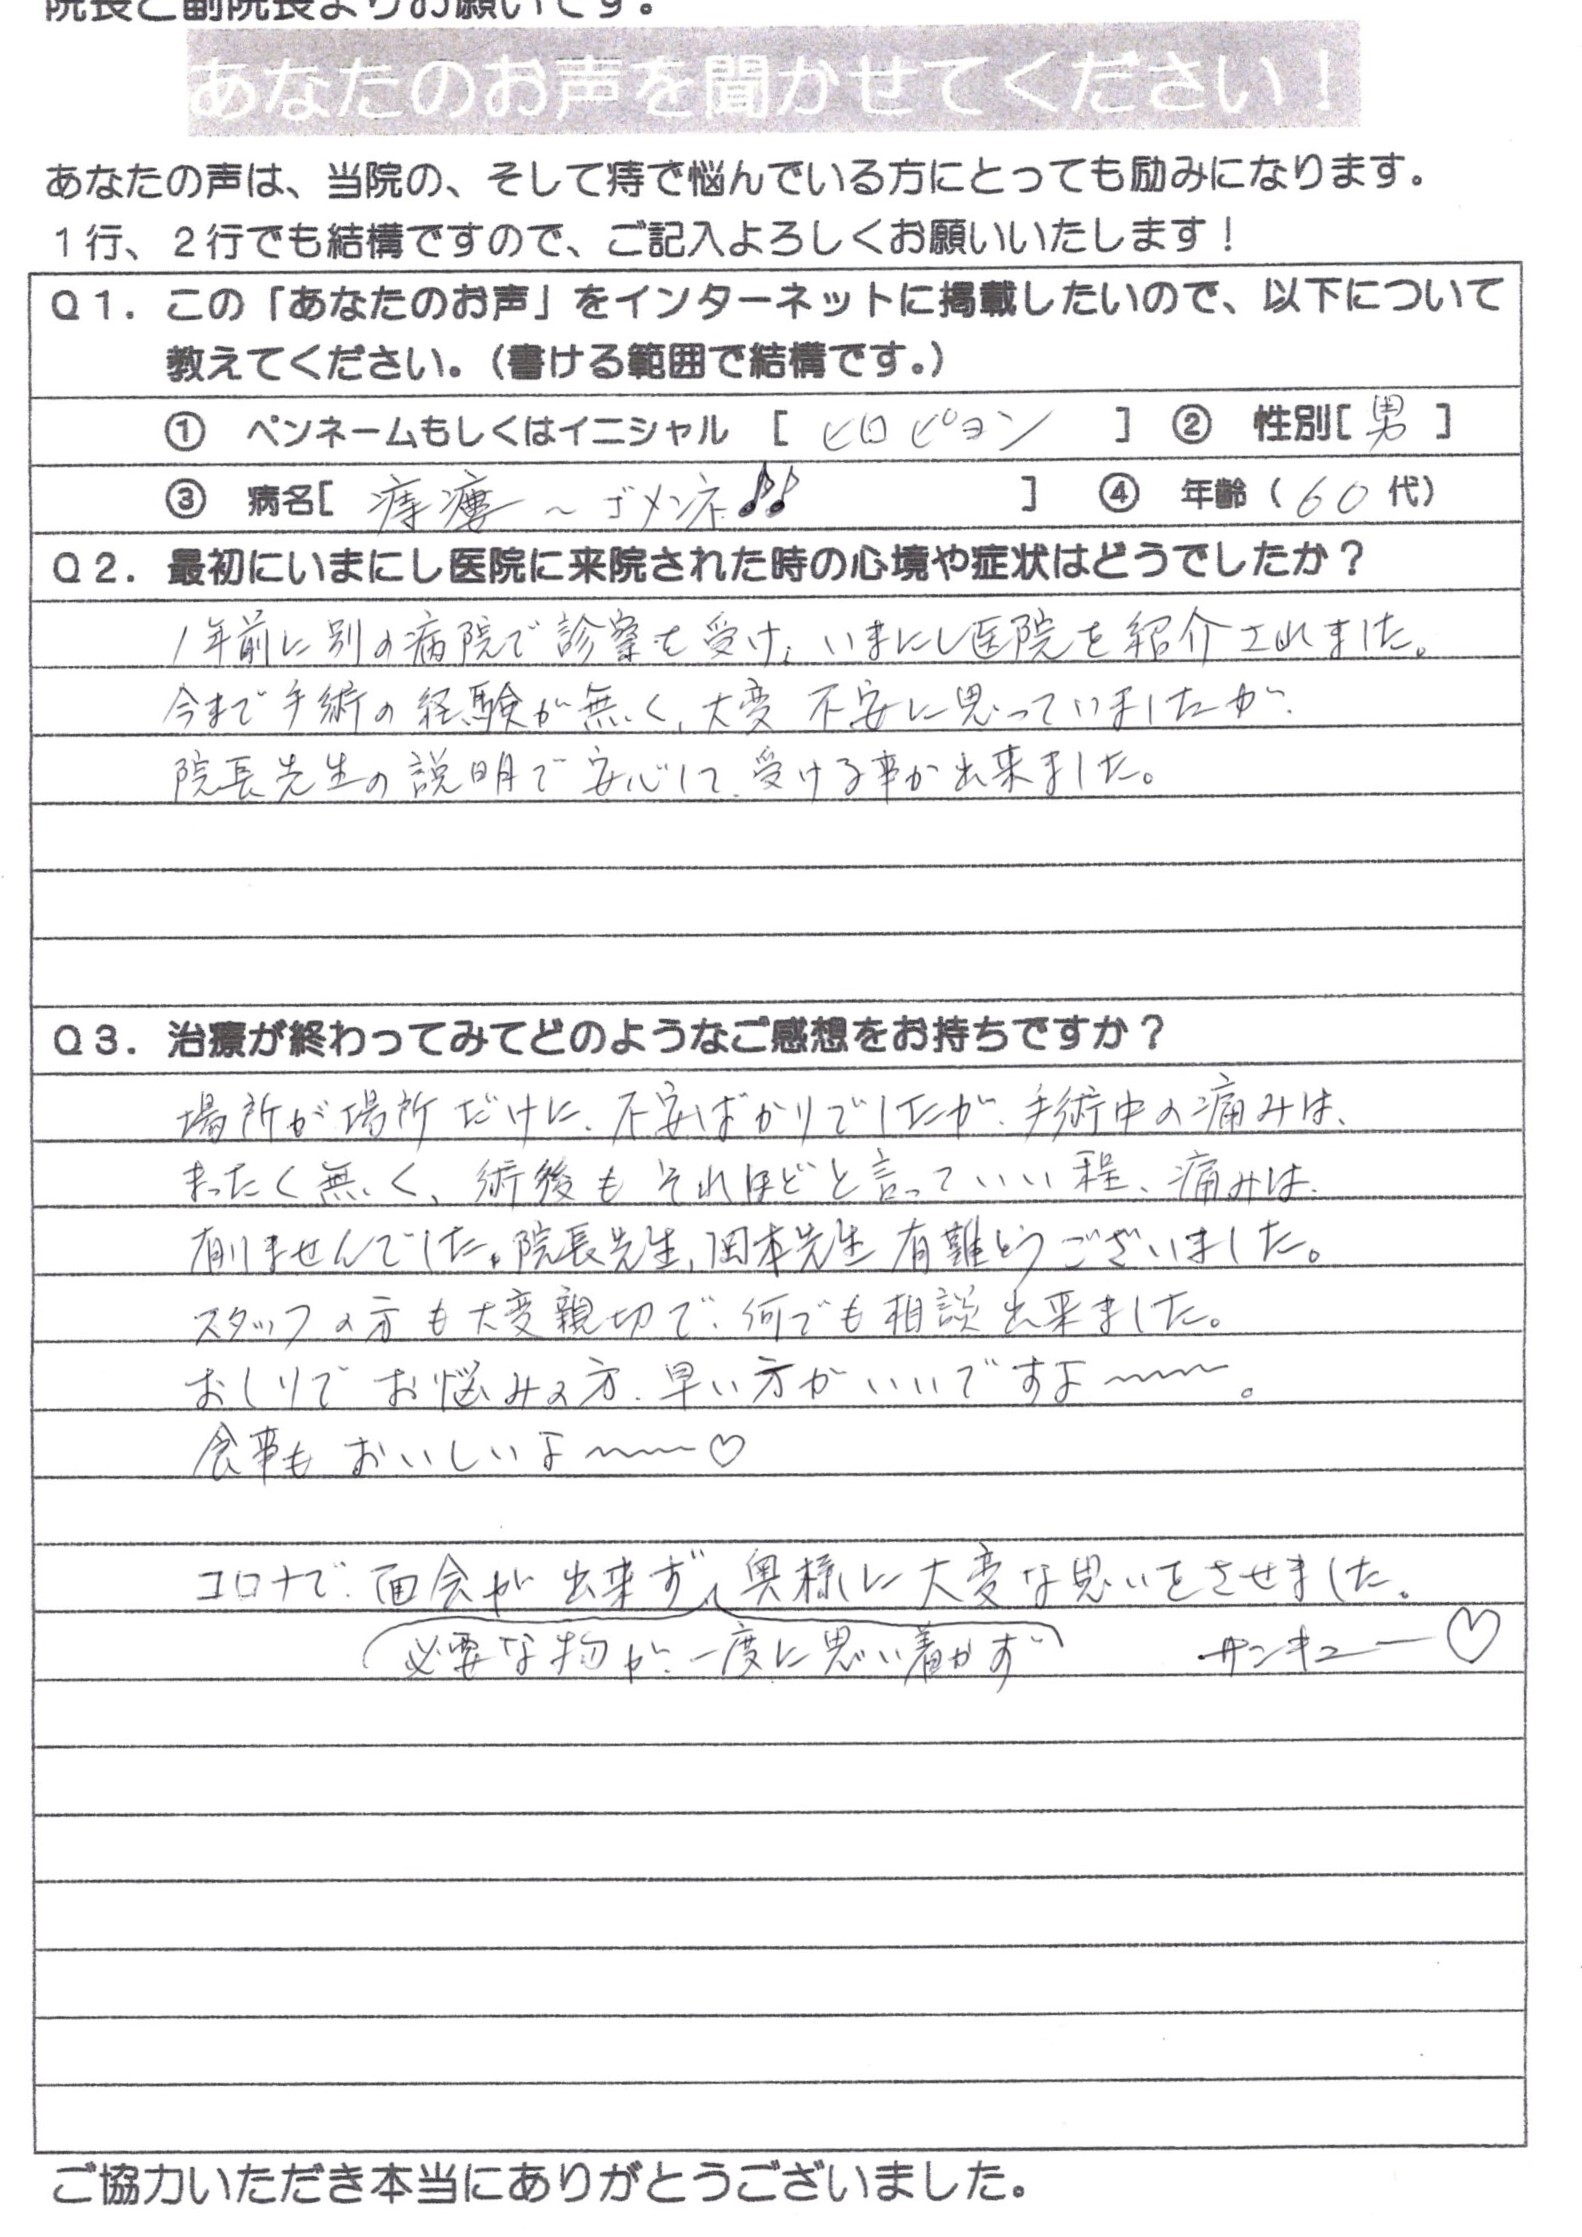 院長と副院長よりお願いです。
あなたのお声を聞かせてください！
あなたの声は、当院の、そして痔で悩んでいる方にとっても励みになります。
１行、２行でも結構ですので、ご記入よろしくお願いいたします！
Ｑ１．この「あなたのお声」をインターネットに掲載したいので、以下について
教えてください。（書ける範囲で結構です。）
① ペンネームもしくはイニシャル ［ ヒロピョン ］ ② 性別［ 男 ］
③ 病名［ 痔瘻～ゴメンネ♪♪ ］ ④ 年齢（ 60 代）
Ｑ２．最初にいまにし医院に来院された時の心境や症状はどうでしたか？
1年前に別の病院で診察を受け、いまにし医院を紹介されました。
今まで手術の経験が無く、大変不安に思っていましたが、
院長先生の説明で安心して、受ける事が出来ました。
Ｑ３．治療が終わってみてどのようなご感想をお持ちですか？
場所が場所だけに、不安ばかりでしたが、手術中の痛みは、
まったく無く、術後もそれほどと言っていい程、痛みは、
有りませんでした。院長先生、岡本先生有難とうございました。
スタッフの方も大変親切で、何でも相談出来ました。
おしりでお悩みの方、早い方がいいですよ～～～。
食事もおいしいよ～～～♡
コロナで、面会が出来ず、奥様に大変な思いをさせました。
（必要な物が、一度に思い着かず） サンキュー♡
ご協力いただき本当にありがとうございました。